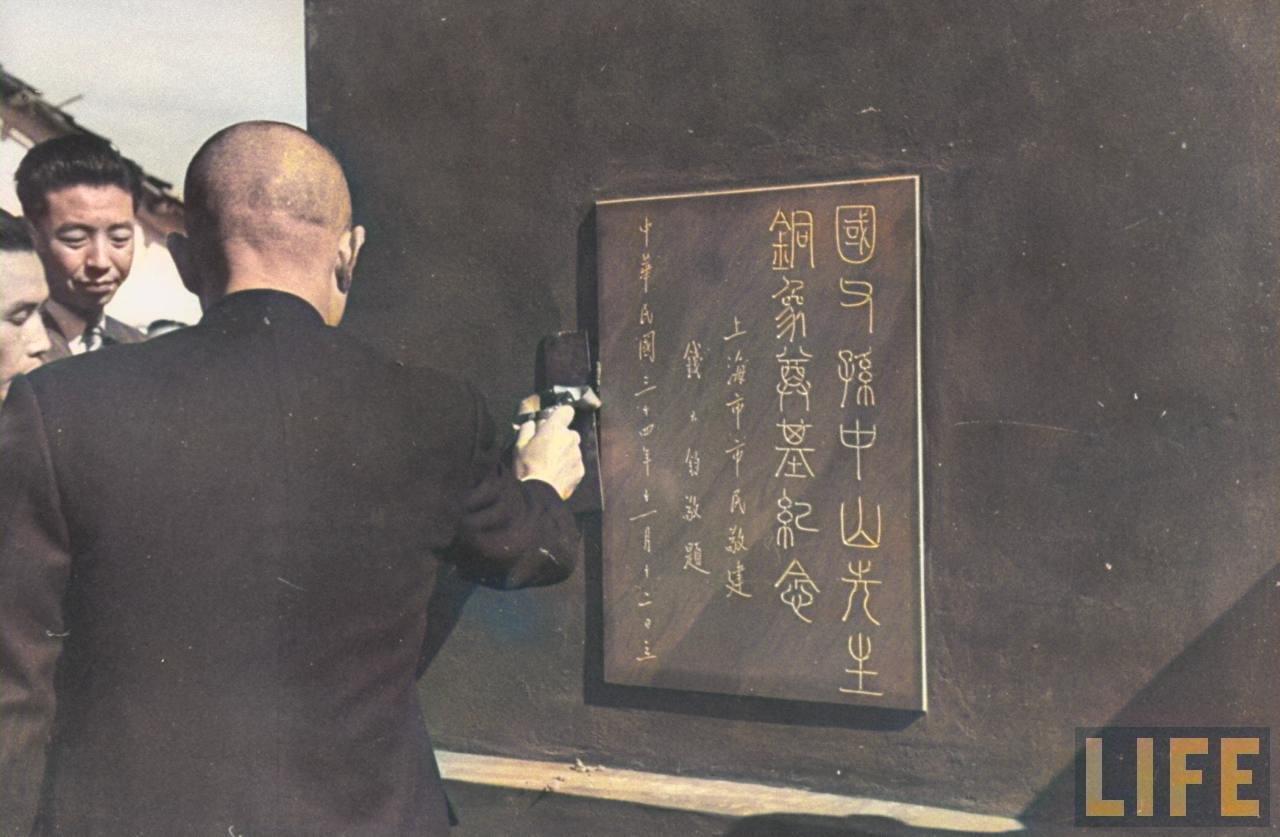 國父孫中山先生
銅象奠基紀念
上海市市民敬建
錢大鈞敬題
中華民國三十四年十一月十二日立
LIFE